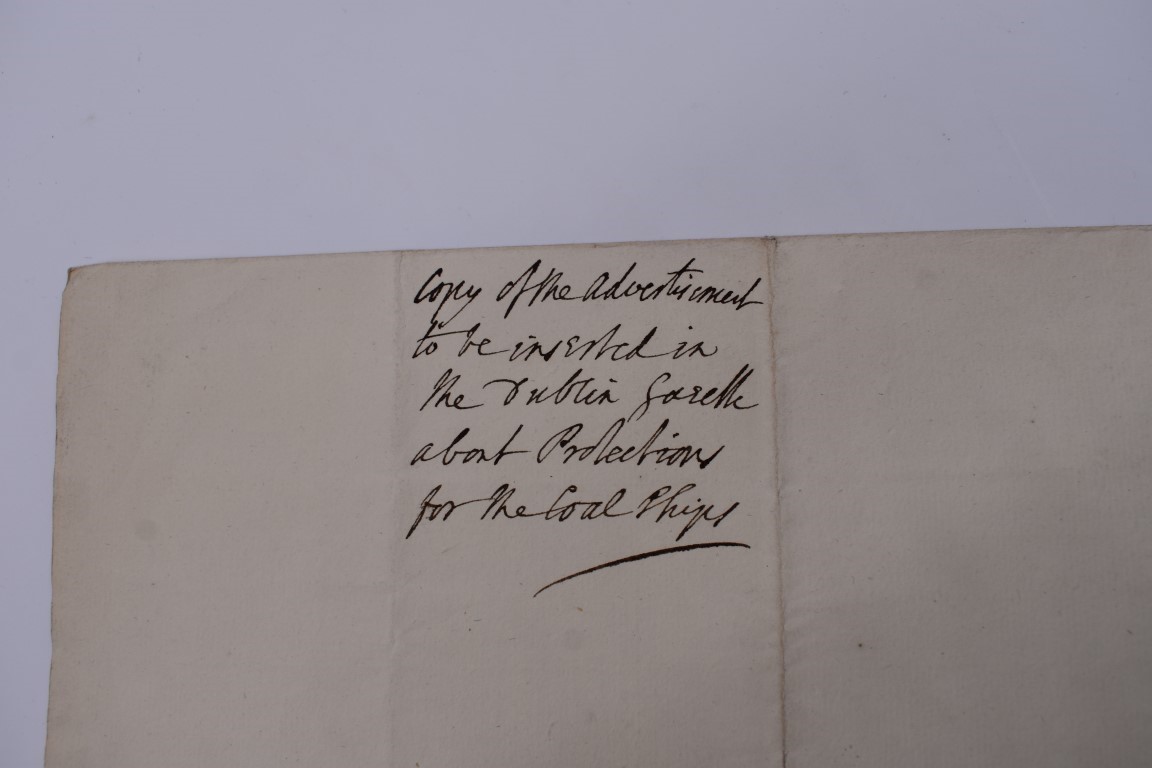 Copy of the Advertisement
to be inserted in
the Dublin Gazette
about Protections
for the Coal Ships